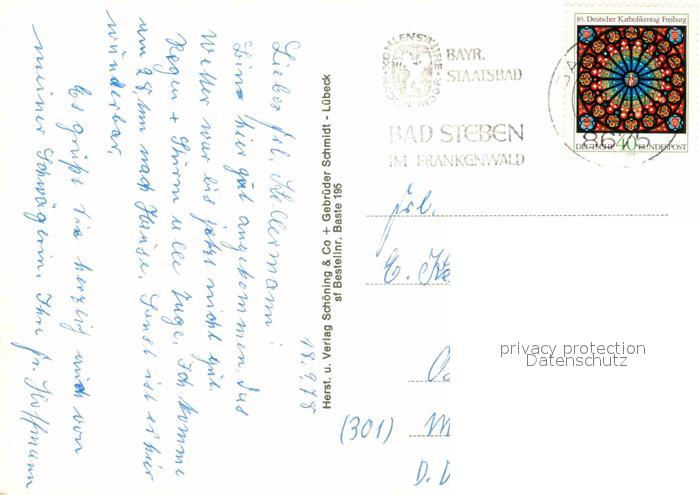 18.9.78
Liebes Frl. Kellermann!
Sind hier gut angekommen, das
Wetter war bis jetzt nicht gut.
Regen + Sturm alle Tage. Ich komme
um nach Hause. Sonst ist es hier
wunderbar.
Es grüßt Sie herzlich auch von
meiner Schwägerin, Ihre fr. Hoffmann
Herst. u. Verlag Schöning & Co + Gebrüder Schmidt - Lübeck
sf Bestellnr. Baste 195
KOHLENSÄURE
RADON MOOR
BAYR.
STAATSBAD
BAD STEBEN
IM FRANKENWALD
85. Deutscher Katholikentag Freiburg
DEUTSCHE 40 BUNDESPOST
8675
Frl.
E. Ke
(301) M
D. D
privacy protection
Datenschutz